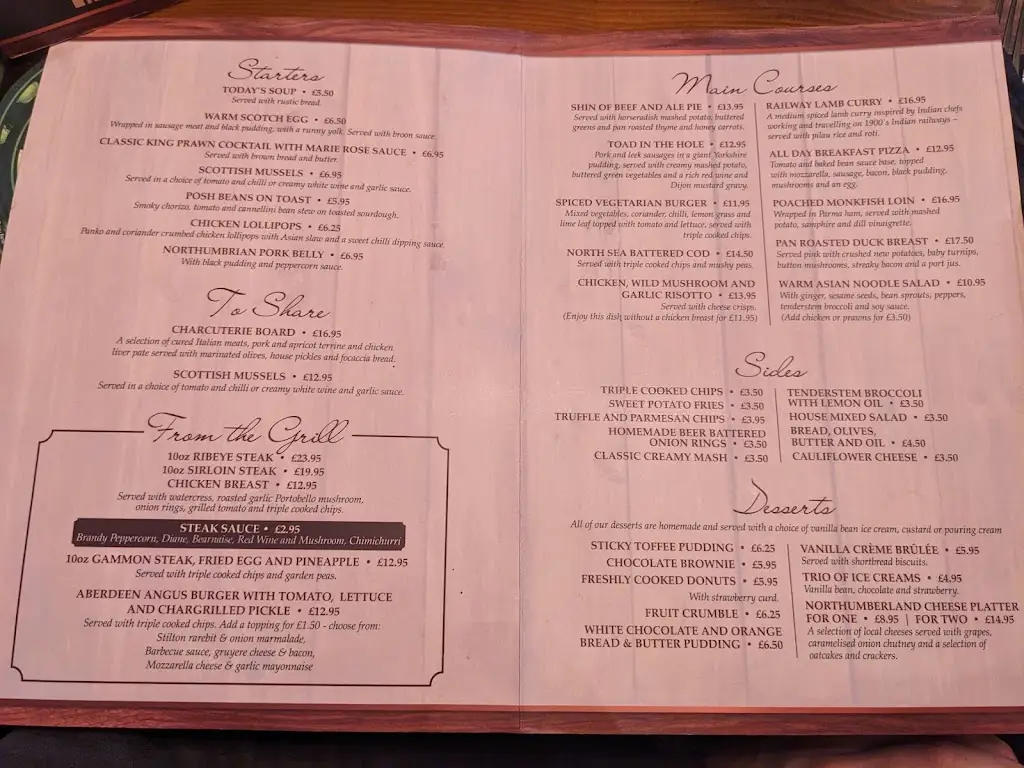 Starters
TODAY'S SOUP • £5.50
Served with rustic bread.
WARM SCOTCH EGG • £6.50
Wrapped in sausage meat and black pudding, with a runny yolk. Served with broon sauce.
CLASSIC KING PRAWN COCKTAIL WITH MARIE ROSE SAUCE • £6.95
Served with brown bread and butter.
SCOTTISH MUSSELS • £6.95
Served in a choice of tomato and chilli or creamy white wine and garlic sauce.
POSH BEANS ON TOAST • £5.95
Smoky chorizo, tomato and cannellini bean stew on toasted sourdough.
CHICKEN LOLLIPOPS • £6.25
Panko and coriander crumbed chicken lollipops with Asian slaw and a sweet chilli dipping sauce.
NORTHUMBRIAN PORK BELLY • £6.95
With black pudding and peppercorn sauce.
To Share
CHARCUTERIE BOARD • £16.95
A selection of cured Italian meats, pork and apricot terrine and chicken
liver pate served with marinated olives, house pickles and focaccia bread.
SCOTTISH MUSSELS • £12.95
Served in a choice of tomato and chilli or creamy white wine and garlic sauce.
From the Grill
10oz RIBEYE STEAK • £23.95
10oz SIRLOIN STEAK • £19.95
CHICKEN BREAST • £12.95
Served with watercress, roasted garlic Portobello mushroom,
onion rings, grilled tomato and triple cooked chips.
STEAK SAUCE • £2.95
Brandy Peppercorn, Diane, Bearnaise, Red Wine and Mushroom, Chimichurri
10oz GAMMON STEAK, FRIED EGG AND PINEAPPLE • £12.95
Served with triple cooked chips and garden peas.
ABERDEEN ANGUS BURGER WITH TOMATO, LETTUCE
AND CHARGRILLED PICKLE • £12.95
Served with triple cooked chips. Add a topping for £1.50 - choose from:
Stilton rarebit & onion marmalade,
Barbecue sauce, gruyere cheese & bacon,
Mozzarella cheese & garlic mayonnaise
Main Courses
SHIN OF BEEF AND ALE PIE • £13.95
Served with horseradish mashed potato, buttered
greens and pan roasted thyme and honey carrots.
TOAD IN THE HOLE • £12.95
Pork and leek sausages in a giant Yorkshire
pudding, served with creamy mashed potato,
buttered green vegetables and a rich red wine and
Dijon mustard gravy.
SPICED VEGETARIAN BURGER • £11.95
Mixed vegetables, coriander, chilli, lemon grass and
lime leaf topped with tomato and lettuce, served with
triple cooked chips.
NORTH SEA BATTERED COD • £14.50
Served with triple cooked chips and mushy peas.
CHICKEN, WILD MUSHROOM AND
GARLIC RISOTTO • £13.95
Served with cheese crisps.
(Enjoy this dish without a chicken breast for £11.95)
RAILWAY LAMB CURRY • £16.95
A medium spiced lamb curry inspired by Indian chefs
working and travelling on 1900's Indian railways –
served with pilau rice and roti.
ALL DAY BREAKFAST PIZZA • £12.95
Tomato and baked bean sauce base, topped
with mozzarella, sausage, bacon, black pudding,
mushrooms and an egg.
POACHED MONKFISH LOIN • £16.95
Wrapped in Parma ham, served with mashed
potato, samphire and dill vinaigrette.
PAN ROASTED DUCK BREAST • £17.50
Served pink with crushed new potatoes, baby turnips,
button mushrooms, streaky bacon and a port jus.
WARM ASIAN NOODLE SALAD • £10.95
With ginger, sesame seeds, bean sprouts, peppers,
tenderstem broccoli and soy sauce.
(Add chicken or prawns for £3.50)
Sides
TRIPLE COOKED CHIPS • £3.50
SWEET POTATO FRIES • £3.50
TRUFFLE AND PARMESAN CHIPS • £3.95
HOMEMADE BEER BATTERED
ONION RINGS • £3.50
CLASSIC CREAMY MASH • £3.50
TENDERSTEM BROCCOLI
WITH LEMON OIL • £3.50
HOUSE MIXED SALAD • £3.50
BREAD, OLIVES,
BUTTER AND OIL • £4.50
CAULIFLOWER CHEESE • £3.50
Desserts
All of our desserts are homemade and served with a choice of vanilla bean ice cream, custard or pouring cream
STICKY TOFFEE PUDDING • £6.25
CHOCOLATE BROWNIE • £5.95
FRESHLY COOKED DONUTS • £5.95
With strawberry curd.
FRUIT CRUMBLE • £6.25
WHITE CHOCOLATE AND ORANGE
BREAD & BUTTER PUDDING • £6.50
VANILLA CRÈME BRÛLÉE • £5.95
Served with shortbread biscuits.
TRIO OF ICE CREAMS • £4.95
Vanilla bean, chocolate and strawberry.
NORTHUMBERLAND CHEESE PLATTER
FOR ONE • £8.95 | FOR TWO • £14.95
A selection of local cheeses served with grapes,
caramelised onion chutney and a selection of
oatcakes and crackers.